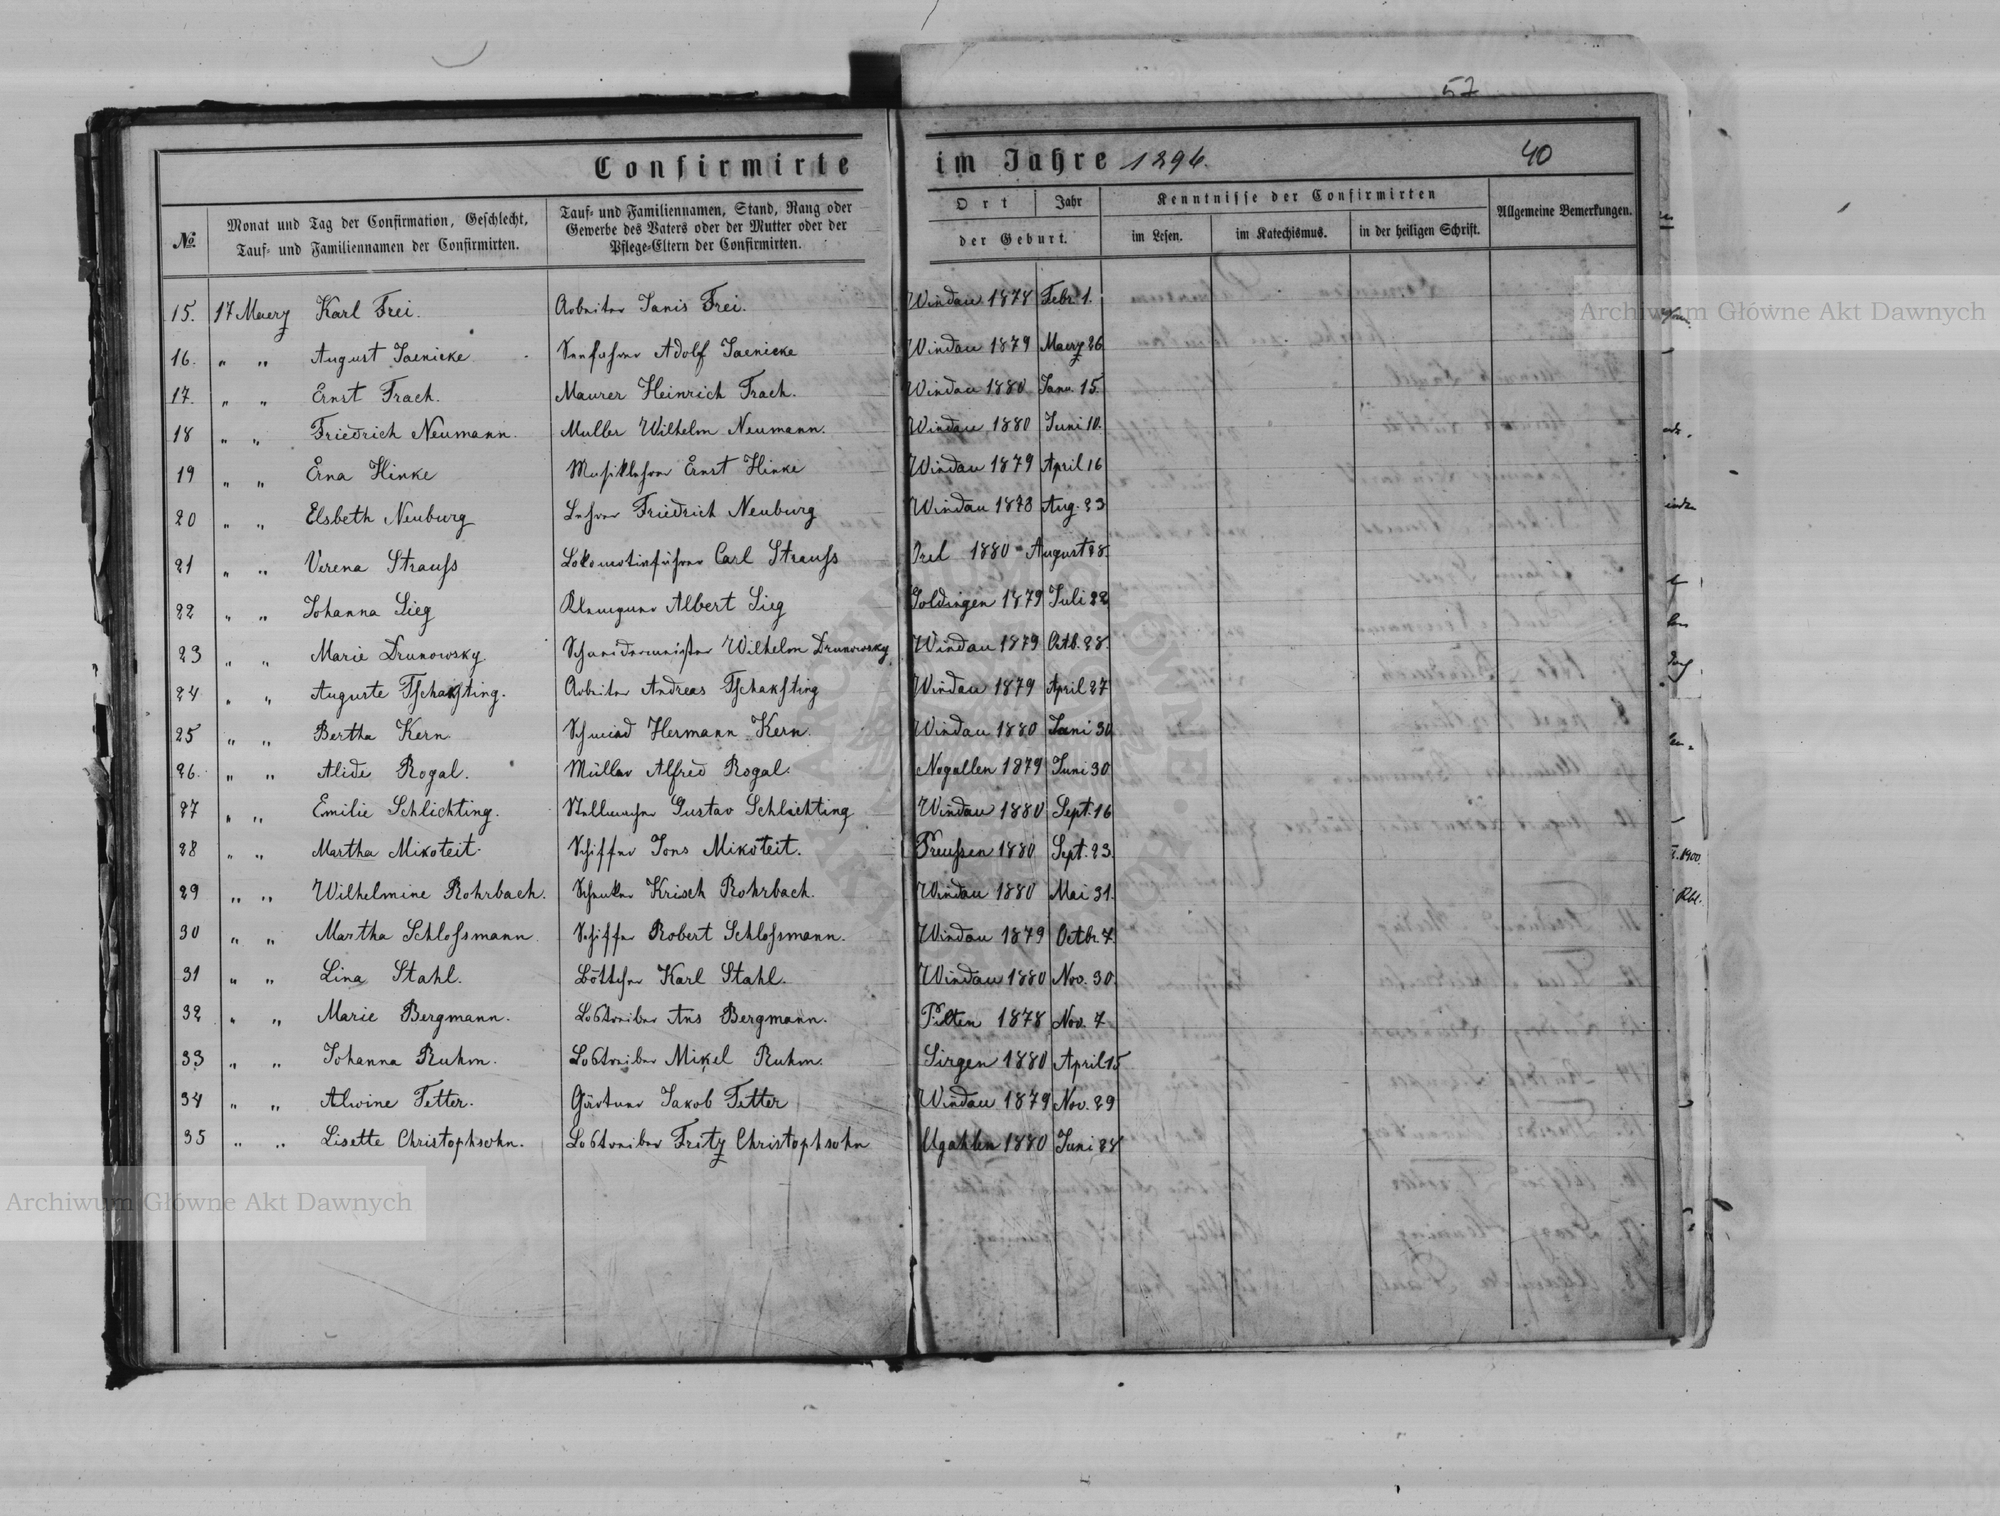 57
Confirmirte im Jahre 1896.
40
№
Monat und Tag der Confirmation, Geschlecht,
Tauf- und Familiennamen der Confirmirten.
Tauf- und Familiennamen, Stand, Rang oder
Gewerbe des Vaters oder der Mutter oder der
Pflege-Eltern der Confirmirten.
Ort Jahr
der Geburt.
Kenntnisse der Confirmirten
im Lesen. im Katechismus. in der heiligen Schrift.
Allgemeine Bemerkungen.
15. 17 Maerz Karl Frei. Arbeiter Janis Frei. Windau 1878 Febr. 1.
16. " " August Jaenicke Seefahrer Adolf Jaenicke Windau 1879 Maerz 26
17. " " Ernst Frach. Maurer Heinrich Frach. Windau 1880 Janu. 15.
18 " " Friedrich Neumann. Muller Wilhelm Neumann. Windau 1880 Juni 10.
19 " " Erna Hinke Musiklehrer Ernst Hinke Windau 1879 April 16
20 " " Elsbeth Neuburg Lehrer Friedrich Neuburg Windau 1878 Aug. 23
21 " " Verena Strauss Lokomotivführer Carl Strauss Orel 1880 August 28.
22 " " Johanna Sieg Klempner Albert Sieg Goldingen 1879 Juli 22
23 " " Marie Drunowsky Schneidermeister Wilhelm Drunowsky Windau 1879 Octb. 28.
24. " " Auguste Tschaksting. Arbeiter Andreas Tschaksting Windau 1879 April 27
25 " " Bertha Kern. Schmied Hermann Kern. Windau 1880 Juni 30
26. " " Alide Rogal. Müller Alfred Rogal. Nogallen 1879 Juni 30
27 " " Emilie Schlichting. Stellmacher Gustav Schlichting Windau 1880 Sept. 16
28 " " Martha Mikoteit. Schiffer Jons Mikoteit. Preussen 1880 Sept. 23.
29 " " Wilhelmine Rohrbach. Schenker Krisch Rohrbach. Windau 1880 Mai 31.
30 " " Martha Schlossmann. Schiffer Robert Schlossmann. Windau 1879 Octbr. 7.
31 " " Lina Stahl. Böttcher Karl Stahl. Windau 1880 Nov. 30
32 " " Marie Bergmann. Lostreiber Ans Bergmann. Pilten 1878 Nov. 7
33 " " Johanna Ruhm. Lostreiber Mikel Ruhm. Sirgen 1880 April 15
34 " " Alwine Fetter. Gärtner Jakob Fetter Windau 1879 Nov. 29
35 " " Lisette Christophsohn. Lostreiber Fritz Christophsohn Ugahlen 1880 Juni 28
Archiwum Główne Akt Dawnych
Archiwum Główne Akt Dawnych